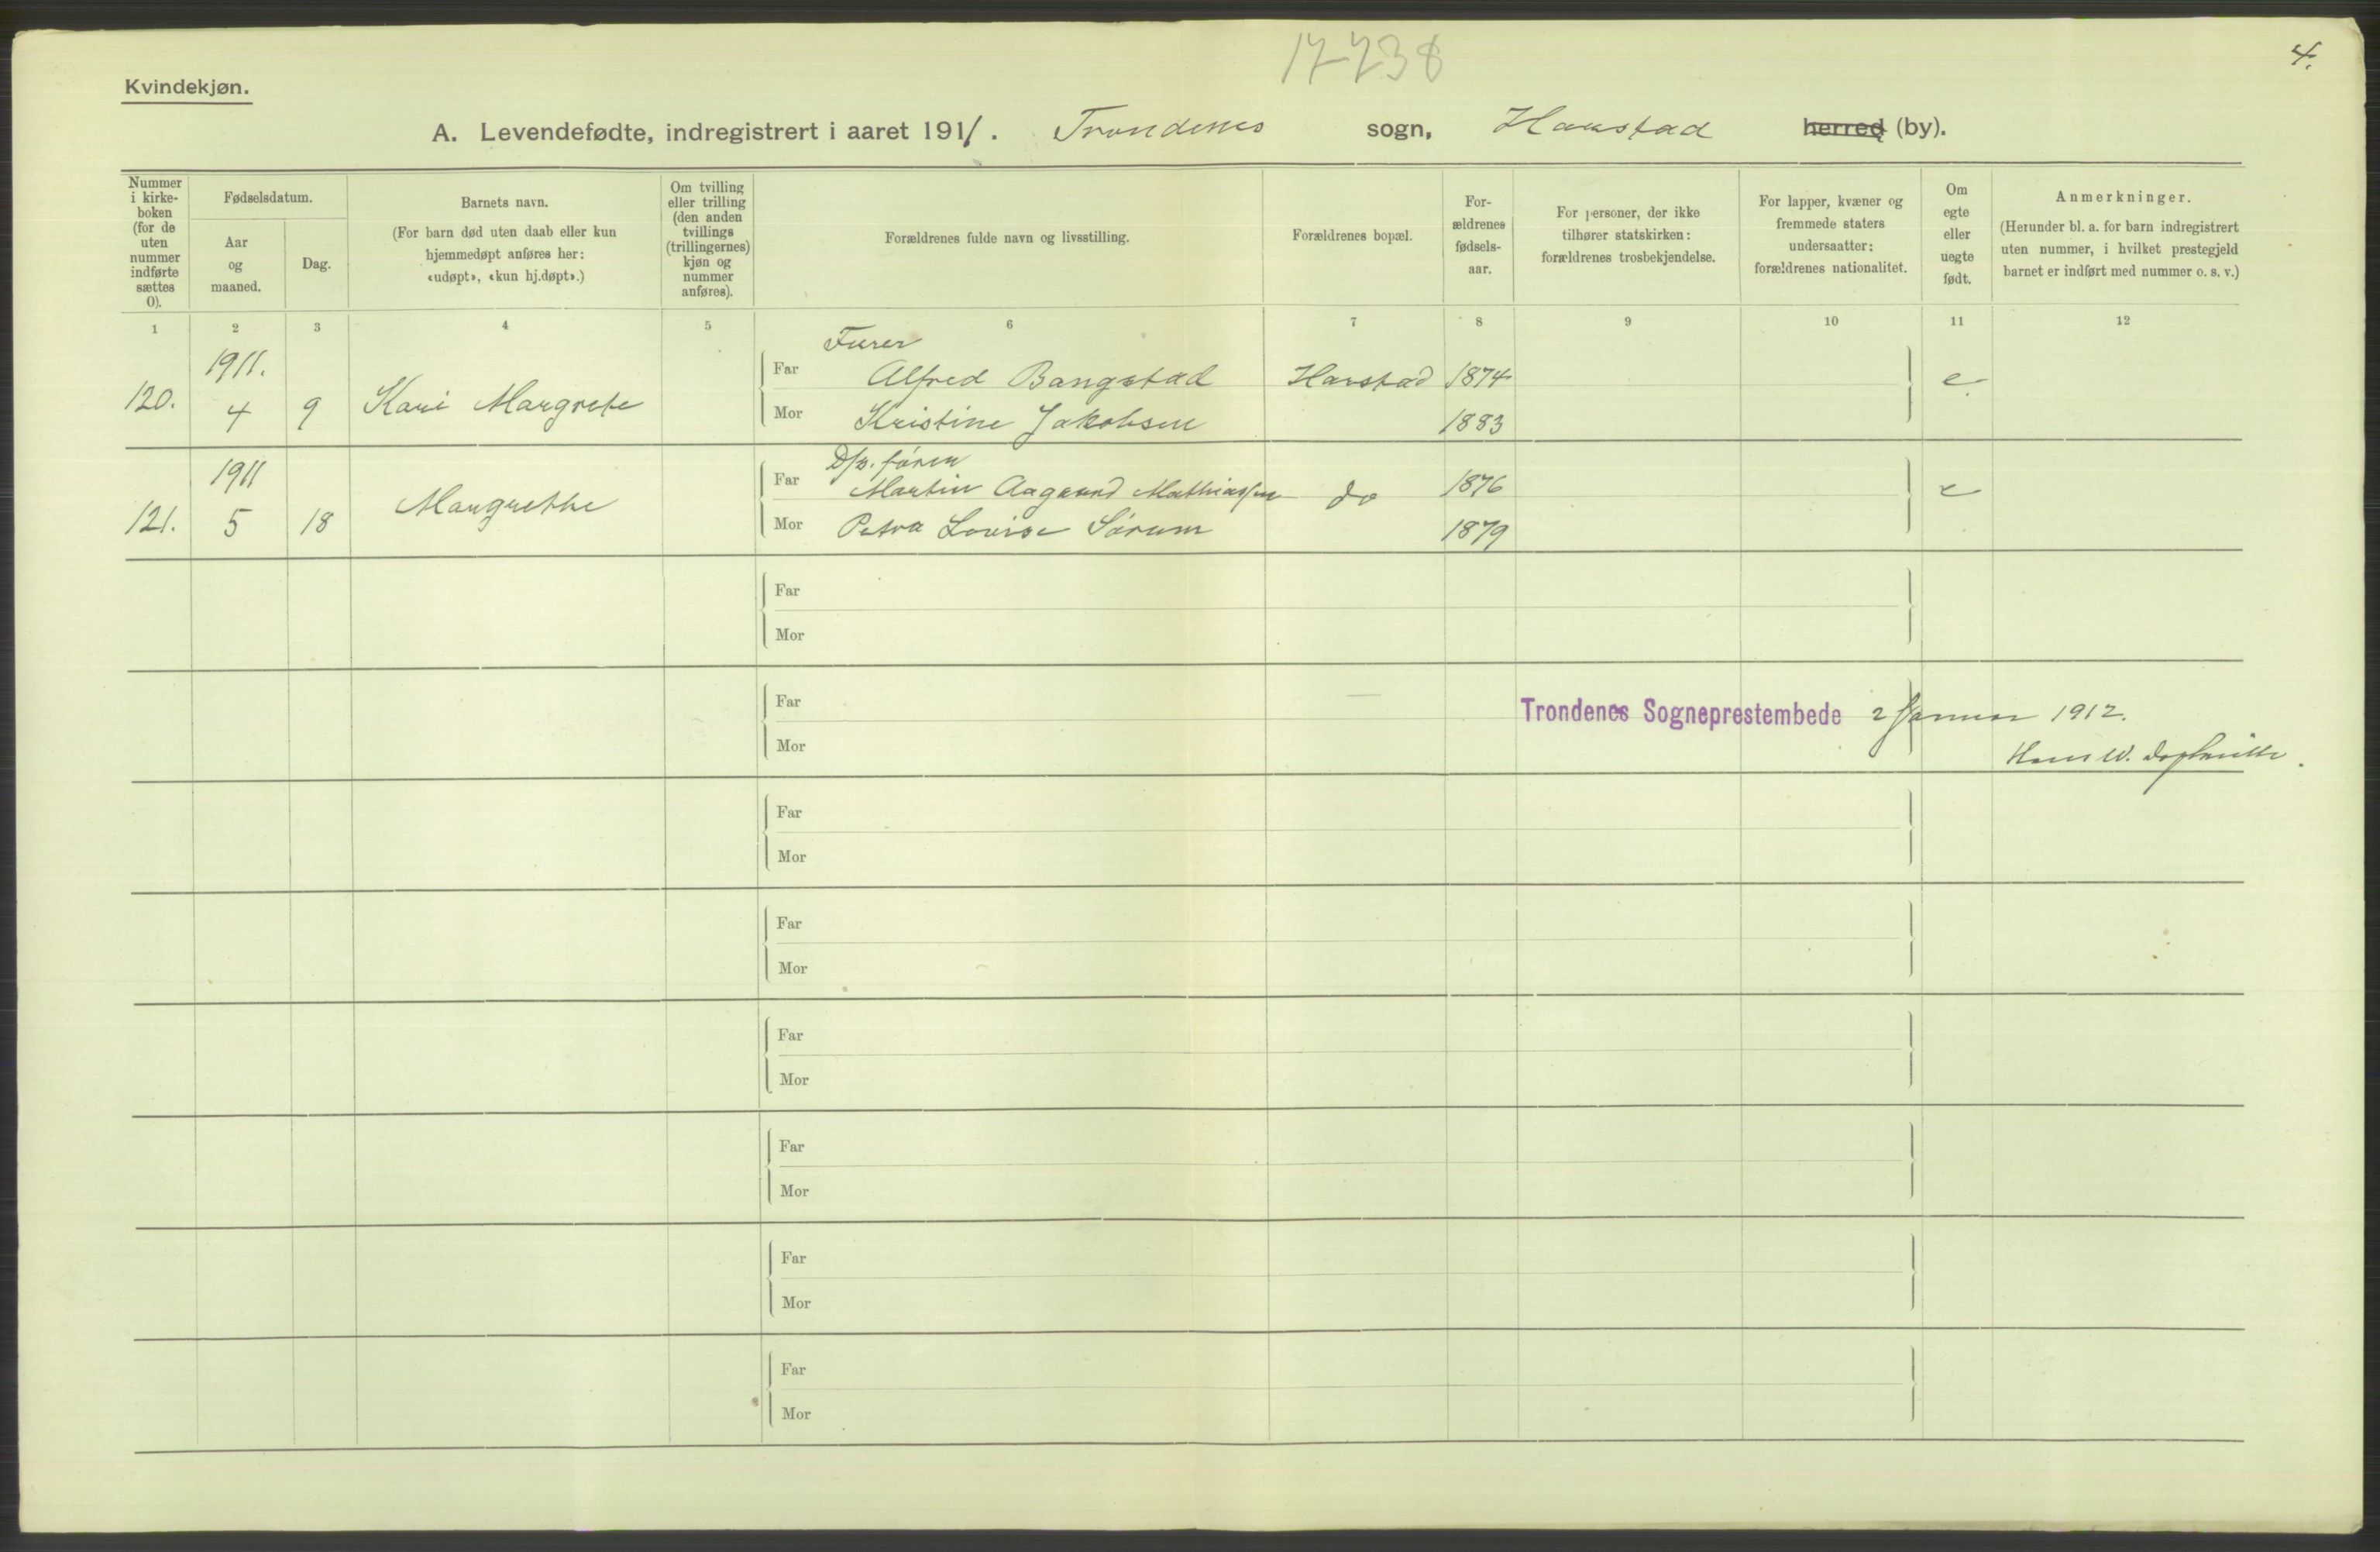 17738
4.
Kvindekjøn.
A. Levendefødte, indregistrert i aaret 1911. Trondenes sogn, Harstad herred (by).
Nummer i kirke-boken (for de uten nummer indførte sættes 0).
Fødselsdatum.
Aar og maaned.
Dag.
Barnets navn.
(For barn død uten daab eller kun hjemmedøpt anføres her: «udøpt», «kun hj.døpt».)
Om tvilling eller trilling (den anden tvillings (trillingernes) kjøn og nummer anføres).
Forældrenes fulde navn og livsstilling.
Forældrenes bopæl.
For-ældrenes fødsels-aar.
For personer, der ikke tilhører statskirken: forældrenes trosbekjendelse.
For lapper, kvæner og fremmede staters undersaatter: forældrenes nationalitet.
Om egte eller uegte født.
Anmerkninger.
(Herunder bl. a. for barn indregistrert uten nummer, i hvilket prestegjeld barnet er indført med nummer o. s. v.)
1 2 3 4 5 6 7 8 9 10 11 12
Furer
1911. Far Alfred Bangstad Harstad 1874 e.
120. 4 9 Kari Margrete Mor Kristine Jakobsen 1883
D/s. fører
1911 Far Martin Aagaard Mathiassen do 1876 e
121. 5 18 Margrethe Mor Petra Lovise Sørum 1879
Far
Mor
Far
Trondenes Sogneprestembede 2 Januar 1912.
Mor
Hans W.
Far
Mor
Far
Mor
Far
Mor
Far
Mor
Far
Mor
Far
Mor